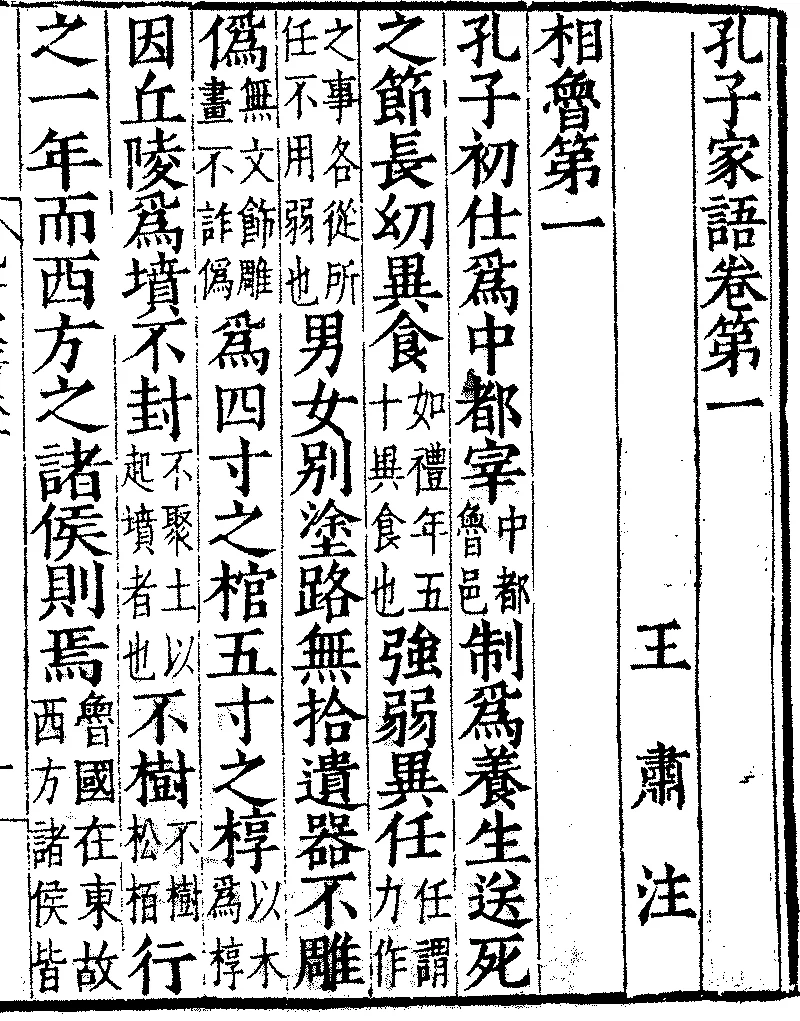 孔子家語卷第一
王肅注
相魯第一
孔子初仕爲中都宰中都魯邑制爲養生送死
之節長幼異食如禮年五十異食也強弱異任任謂力作
之事各從所任不用弱也男女別塗路無拾遺器不雕
僞無文飾雕畫不詐僞爲四寸之棺五寸之椁以木爲椁
因丘陵爲墳不封不聚土以起墳者也不樹不樹松栢行
之一年而西方之諸侯則焉魯國在東故西方諸侯皆